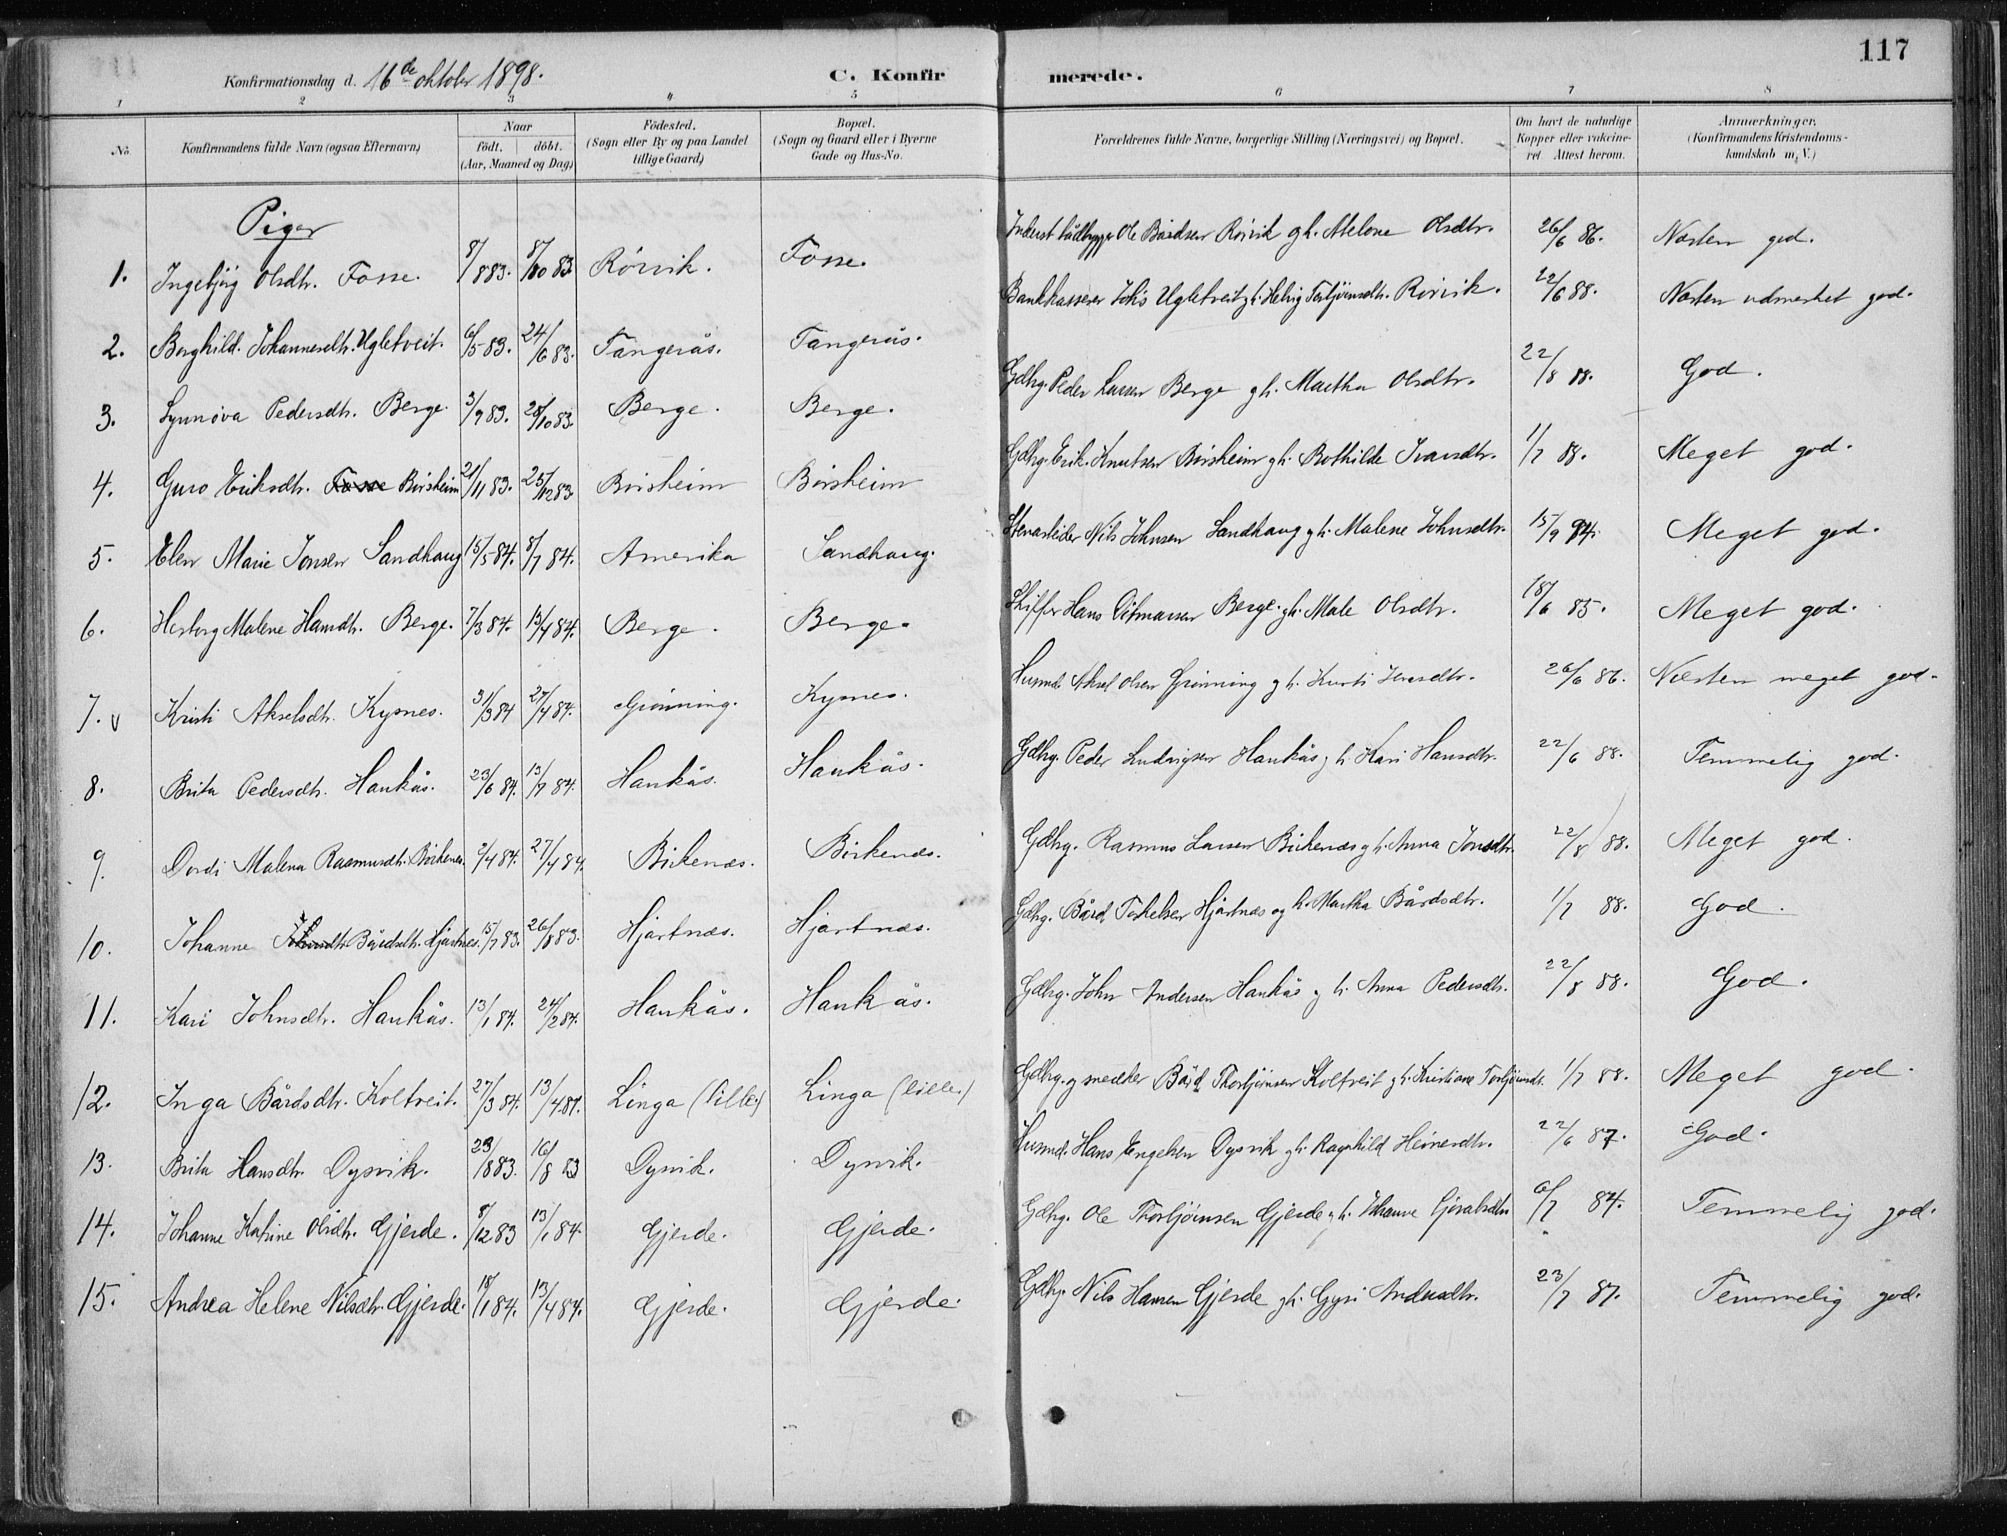 117
Konfirmationsdag d. 16de oktober 1898. C. Konfirmerede.
1 2 3 4 5 6 7 8
No. Konfirmandens fulde Navn (ogsaa Efternavn) Naar födt. döbt. (Aar, Maaned og Dag) Födested. (Sogn eller By og paa Landet tillige Gaard) Bopæl. (Sogn og Gaard eller i Byerne Gade og Hus-No. Forældrenes fulde Navne, borgerlige Stilling (Næringsvei) og Bopæl. Om havt de naturlige Kopper eller vaccineret Attest herom. Anmærkninger. (Konfirmandens Kristendomskundskab m. V.)
Piger
1. Ingebjörg Olsdtr. Fosse. 8/8 83. 8/10 83. Rörvik. Fosse. Inderst Ole Bårdsen Rörvik gh. Olsdtr. 26/6 86. Næsten god.
2. Borghild Johannesdtr. Ugletveit. 6/5 83. 24/6 83. Tangerås. Tangerås. Bankkasserer Johs Ugletveit gh. Helvig Torbjörnsdtr. Rörvik. 22/6 88. Næsten udmerket god.
3. Synnöva Pedersdtr. Berge. 3/9 83. 28/10 83. Berge. Berge. Gdbrg. Peder Larsen Berge gh. Martha Olsdtr. 22/8 88. God.
4. Guro Eriksdtr. Fosse Börsheim 21/11 83. 25/12 83. Börsheim Börsheim Gdbrg. Erik Knutsen Börsheim gh. Bothilde Ivarsdtr. 1/7 88. Meget god.
5. Elen Marie Jonsen Sandhaug 15/5 84. 8/7 84. Amerika Sandhaug. Stenarbeider Nils Johnsen Sandhaug gh. Malene Johnsdtr. 15/9 94. Meget god.
6. Herborg Malene Hansdtr. Berge. 7/3 84. 13/4 84. Berge. Berge. Skiffer Hans Ditmarsen Berge gh. Male Olsdtr. 18/6 85. Meget god.
7. v Kristi Akselsdtr. Kysnes. 31/3 84 27/4 84. Grönning. Kysnes. Husmd. Aksel Olsen Grönning gh. Kursti 26/6 86. Næsten meget god.
8. Brita Pedersdtr. Haukås. 23/6 84. 13/7 84. Haukås. Haukås. Gdbrg. Peder Ludvigsen Haukås gh. Kari Hansdtr. 22/6 88. Temmelig god.
9. Dordi Malena Rasmusdtr. Birkenes. 2/4 84. 27/4 84. Birkenæs. Birkenæs. Gdbrg. Rasmus Larsen Birkenæs gh. Anna Jonsdtr. 22/8 88. Meget god.
10. Johanne Johnsdtr. Bårdsdtr. Hjartnes. 15/7 83. 26/8 83. Hjartnæs. Hjartnæs. Gdbrg. Bård Torkelsen Hjartnæs og h. Martha Bårdsdtr. 1/7 88. God.
11. Kari Johnsdtr. Haukås. 13/1 84. 24/2 84. Haukås. Haukås. Gdbrg. John Andersen Haukås gh. Anna Pedersdtr. 22/8 88. God.
12. Inga Bårdsdtr. Koltveit. 27/3 84. 13/4 84. Linga (lille) Linga (lille) Gdbrg. og snedker Bård Thorbjörnsen Koltveit gh. Kristiane Torbjörnsdtr. 1/7 88. Meget god.
13. Brita Hansdtr. Dysvik. 23/8 83. 16/8 83 Dysvik. Dysvik. Husmd. Hans Engelsen Dysvik gh. Ragnhild 22/6 87. God.
14. Johanne Katrine Olsdtr. Gjerde. 8/12 83 13/1 84. Gjerde. Gjerde. Gdbrg. Ole Thorbjörnsen Gjerde gh. Johanne 6/7 84. Temmelig god.
15. Andrea Helene Nilsdtr. Gjerde. 18/1 84. 13/4 84. Gjerde. Gjerde. Gdbrg. Nils Hansen Gjerde gh. Gyri Andersdtr. 23/7 87. Temmelig god.